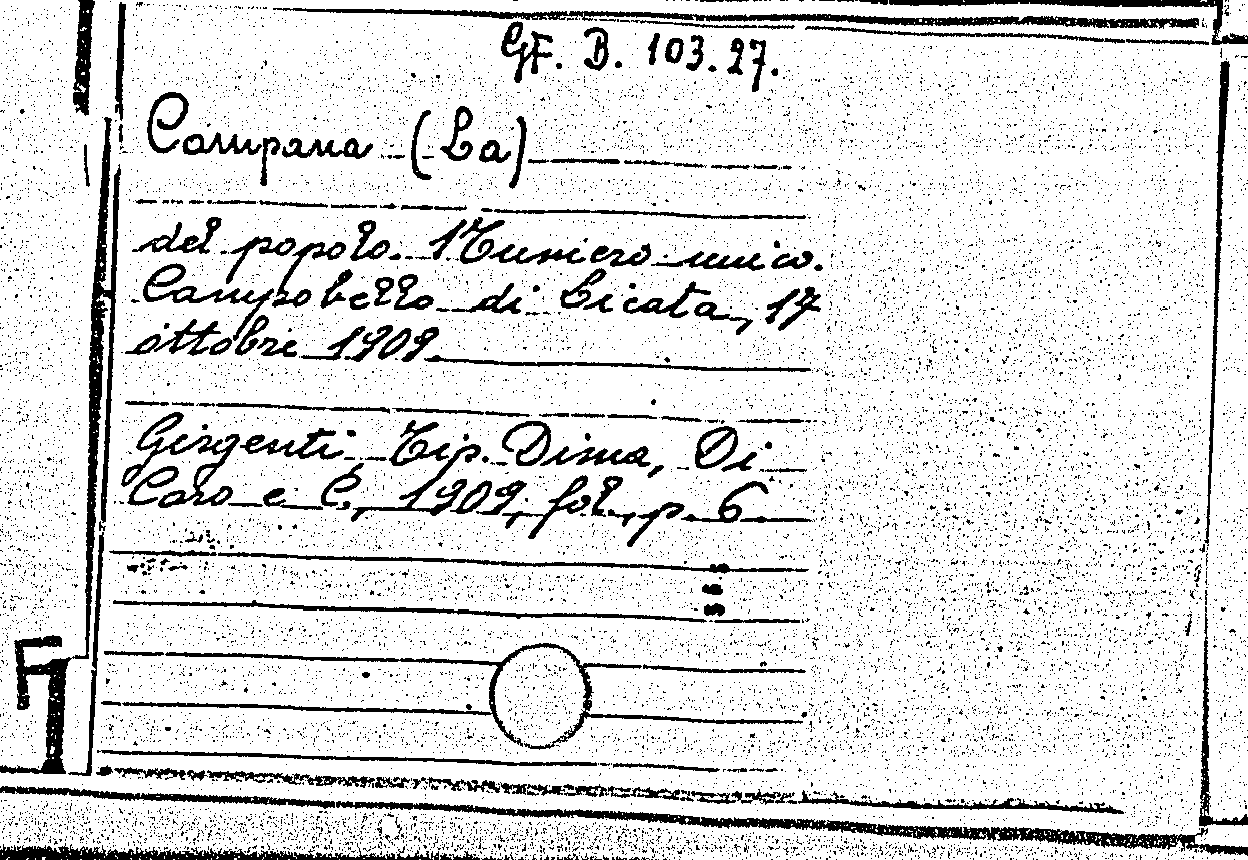 GF. B. 103.27.
Campana (La)
del popolo. Numero unico.
Campobello di Licata, 17
ottobre 1909
Girgenti, Tip. Dima, Di
Caro e C., 1909, fol., p. 6